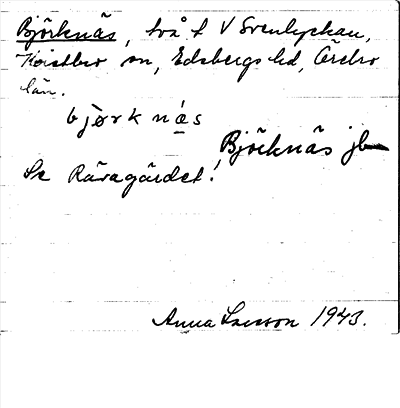 Björknäs, två t V Svenlyckan,
Kvistbro sn, Edsbergs hd, Örebro
län.
bjørk nǽs
Björknäs jb
Se Råragärdet!
Anna Larsson 1943.